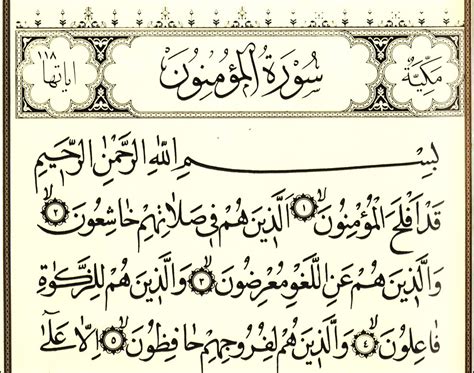 مكية سورة المؤمنون اياتها ١١٨
بسم الله الرحمن الرحيم
قد افلح المؤمنون ١ الذين هم في صلاتهم خاشعون ٢
والذين هم عن اللغو معرضون ٣ والذين هم للزكوة
فاعلون ٤ والذين هم لفروجهم حافظون ٥ الا على